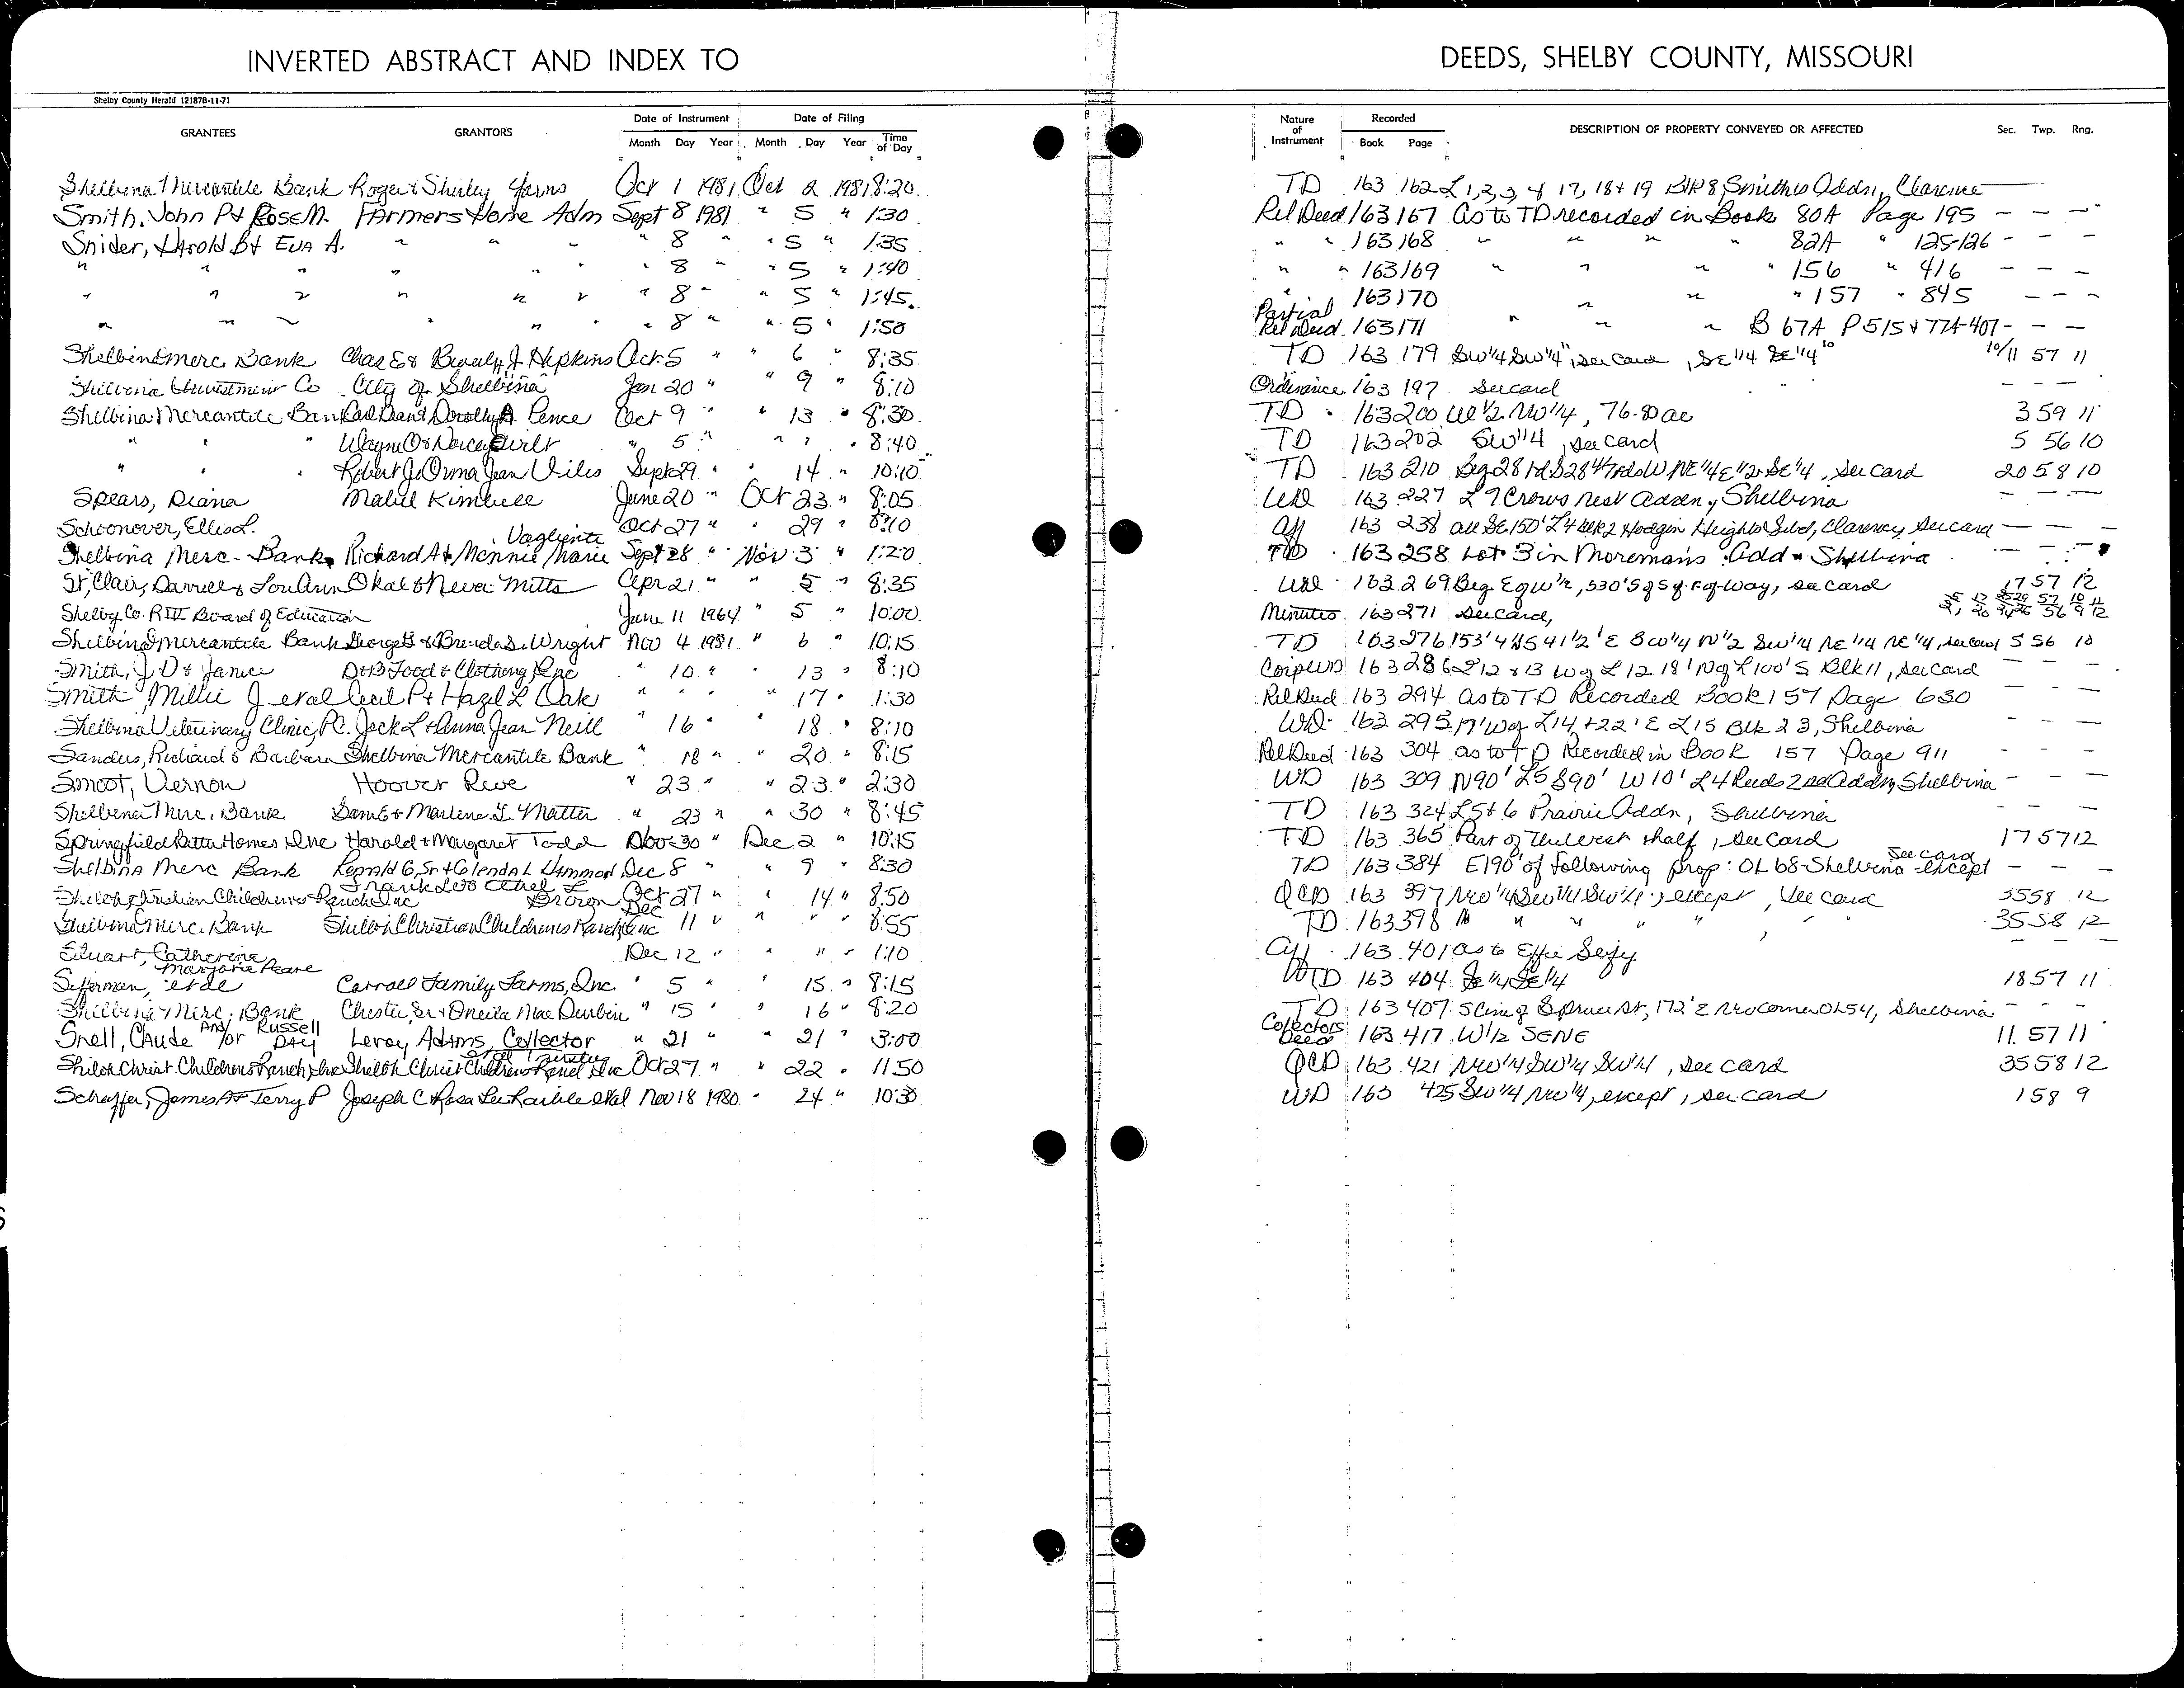 INVERTED ABSTRACT AND INDEX TO DEEDS, SHELBY COUNTY, MISSOURI
Shelby County Herald 12187B-11-71
GRANTEES GRANTORS Date of Instrument Month Day Year Date of Filing Month Day Year Time of Day Nature of Instrument Recorded Book Page DESCRIPTION OF PROPERTY CONVEYED OR AFFECTED Sec. Twp. Rng.
Shelbina Mercantile Bank Roger & Shirley Yarns Oct 1 1981 Oct 2 1981 8:20 TD 163 162 L 1,2,3, 4 17, 18 + 19 Blk 8, Smith's Addn, Clarence
Smith, John P + Rose M. Farmers Home Adm Sept 8 1981 " 5 " 1:30 Rel Deed 163 167 As to TD recorded in Book 80A Page 195 - - -
Snider, Harold B + Eva A. " " " " 8 " " 5 " 1:35 " " 163 168 " " " " 82A " 125-126 - - -
" " " " " " " 8 " " 5 " 1:40 " " 163 169 " " " " 156 " 416 - - -
" " " " " " " 8 " " 5 " 1:45 " 163 170 " " " 157 " 845 - - -
" " " " " " " 8 " " 5 " 1:50 Partial Rel Deed 163 171 " " " B 67A P 515 + 77A-407 - - -
Shelbina Merc. Bank Chas E & Beverly J. Hopkins Oct 5 " " 6 " 8:35 TD 163 179 SW 1/4 SW 1/4 11, See Card, SE 1/4 SE 1/4 10 10/11 57 11
Shelbina Investment Co City of Shelbina Jan 20 " " 9 " 8:10 Ordinance 163 197 See card - - -
Shelbina Mercantile Bank Carl Dean & Dorothy A Pence Oct 9 " " 13 " 8:30 TD 163 200 W 1/2 NW 1/4, 76.80 ac 3 59 11
" " " Wayne O & Norcey " 5 " " " " 8:40 TD 163 202 SW 1/4, See Card 5 56 10
" " " Robert J & Orma Jean Viles Sept 29 " " 14 " 10:10 TD 163 210 Beg 28 rd S 28 4/7 rds W NE 1/4 E 1/2 SE 1/4, See Card 20 58 10
Spears, Diana Mabel Kimbell June 20 " Oct 23 " 8:05 WD 163 227 L 9 Crows Nest Addn, Shelbina - - -
Schoonover, Ellis L. Oct 27 " " 29 " 8:10 Aff 163 238 All SE 150' L 4 Blk 2 Hodgin Heights Subd, Clarence, See card - - -
Shelbina Merc. Bank Richard A & Minnie Marie Vagliente Sept 28 " Nov 3 " 1:20 TD 163 258 Lot 3 in Moreman's Add. Shelbina - - -
St. Clair, Darrell & Lou Ann Okal & Neva Mitts Apr 21 " " 5 " 8:35 WD 163 269 Beg E of W 1/2, 530' S of S g. r-of-way, See Card 17 57 12
Shelby Co. R IV Board of Education June 11 1964 " 5 " 10:00 Minutes 163 271 See Card,
Shelbina Mercantile Bank George G & Brenda S. Wright Nov 4 1981 " 6 " 10:15 TD 163 276 153' 4 N S 41 1/2' E SW 1/4 N 1/2 SW 1/4 NE 1/4 NE 1/4, See card 5 56 10
Smith, J.D & Janice D & B Food & Clothing, Inc " 10 " " 13 " 8:10 Corp WD 163 286 L 12 & 13 W of L 12 18' N of L 100' S Blk 11, See Card - - -
Smith, Millie J et al Cecil P & Hazel L Oak " " " " 17 " 1:30 Rel Deed 163 294 As to TD Recorded Book 157 Page 630 - - -
Shelbina Veterinary Clinic, P.C. Jack L & Anna Jean Neill " 16 " " 18 " 8:10 WD 163 295 17' W of L 14 + 22' E L 15 Blk 23, Shelbina - - -
Sanders, Richard & Barbara Shelbina Mercantile Bank " 18 " " 20 " 8:15 Rel Deed 163 304 as to TD Recorded in Book 157 Page 911 - - -
Smoot, Vernon Hoover Reve " 23 " " 23 " 2:30 WD 163 309 N 90' L 5 S 90' W 10' L 4 Reeds 2nd Addn, Shelbina - - -
Shelbina Merc. Bank Sam E & Marlene L. Matter " 23 " " 30 " 8:45 TD 163 324 L 5 + 6 Prairie Addn, Shelbina - - -
Springfield Better Homes Inc Harold & Margaret Todd Nov 30 " Dec 2 " 10:15 TD 163 365 Part of the West half, See Card 17 57 12
Shelbina Merc Bank Ronald G, Sr & Glenda L Hammon Dec 8 " " 9 " 8:30 TD 163 384 E 190' of following prop: OL 68 - Shelbina - except See card - -
Shiloh Christian Childrens Ranch Inc Frank Leo Ethel L Brown Oct 27 " " 14 " 8:50 QCD 163 397 NW 1/4 SW 1/4 SW 1/4, except, See card 35 58 12
Shelbina Merc. Bank Shiloh Christian Childrens Ranch Inc Dec 11 " " " " 8:55 TD 163 398 " " " " " 35 58 12
Stuart, Catherine Dec 12 " " " " 1:10 Aff 163 401 as to Effie - - -
Sifferman, Marjorie Pearl et al Carroll Family Farms, Inc. " 5 " " 15 " 8:15 WTD 163 404 SE 1/4 SE 1/4 18 57 11
Shelbina Merc. Bank Chester, Sr & Oneita Mae Durbin " 15 " " 16 " 8:20 TD 163 407 S line of Spruce St, 172' E NW corner OL 54, Shelbina - - -
Snell, Claude And/or Russell Day Leroy Adams, Collector " 21 " " 21 " 3:00 Colectors Deed 163 417 W 1/2 SENE 11 57 11
Shiloh Christ. Childrens Ranch, Inc Shiloh Christ Childrens Ranch Inc Oct 27 " " 22 " 11:50 QCD 163 421 NW 1/4 SW 1/4 SW 1/4, See card 35 58 12
Schaffer, James A & Terry P Joseph C & Rosa Lee et al Nov 18 1980 " 24 " 10:30 WD 163 425 SW 1/4 NW 1/4, except, See card 1 58 9